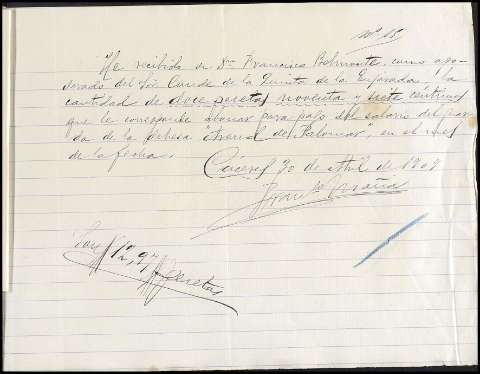 Nº 15
He recibido de Dn Francisco Belmonte, como apo-
derado del Sr. Conde de la Quinta de la Enjarada la
cantidad de doce pesetas noventa y siete céntimos
que le corresponde abonar para pago del salario del guar-
da de la dehesa "Arenal de Palomar", en el mes
de la fecha.
Cáceres 30 de Abril de 1909
Son 12,97 pesetas